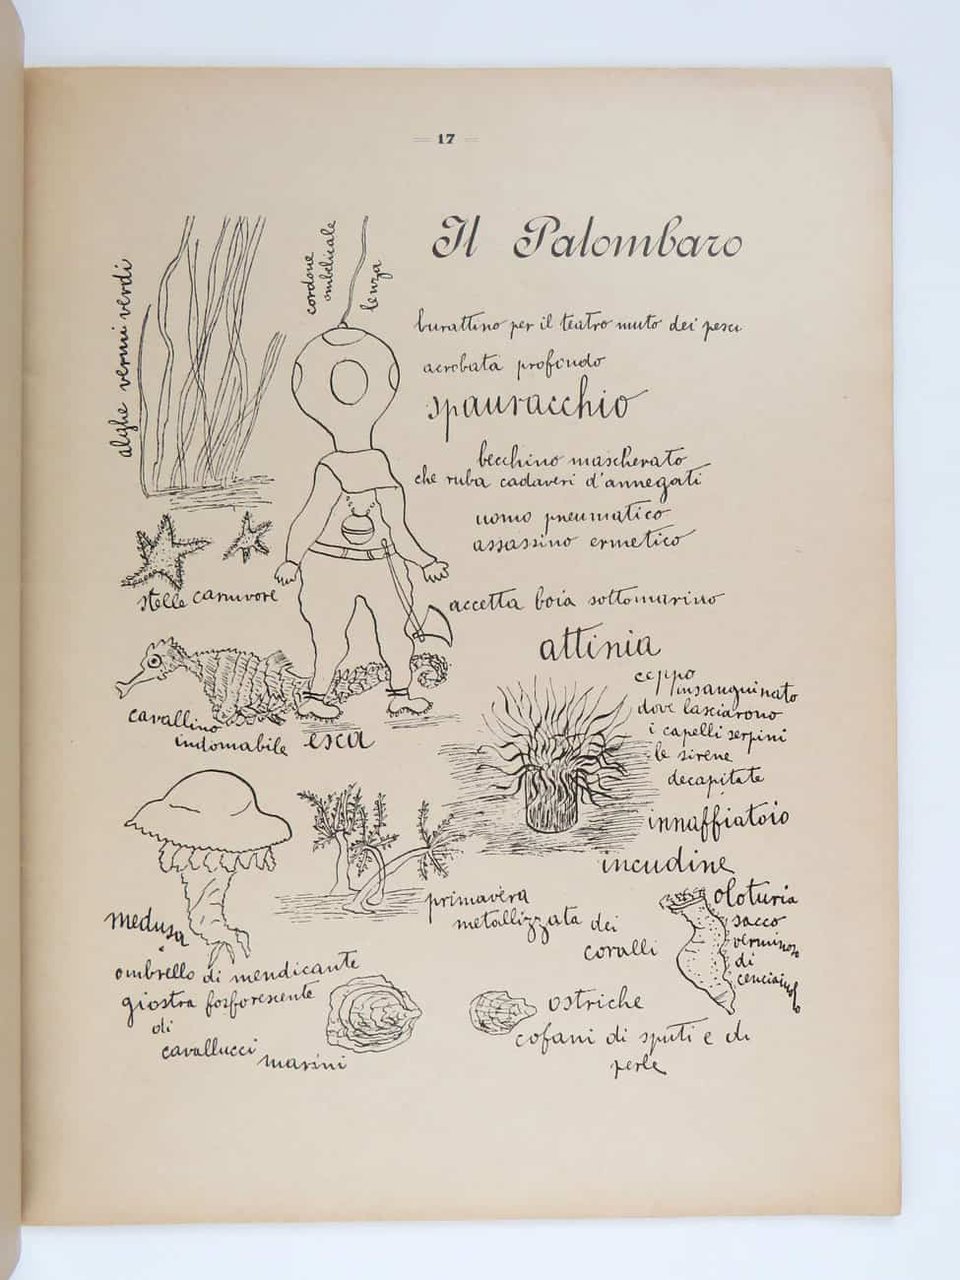 17
Il Palombaro
alghe vermi verdi
cordone
ombelicale
lenza
burattino per il teatro muto dei pesci
acrobata profondo
spauracchio
becchino mascherato
che ruba cadaveri d'annegati
uomo pneumatico
assassino ermetico
stelle carnivore
accetta boia sottomarino
attinia
ceppo
insanguinato
dove lasciarono
i capelli serpini
le sirene
decapitate
cavallino
indomabile
esca
innaffiatoio
incudine
primavera
metallizzata dei
coralli
oloturia
sacco
verminoso
di
cenciaiuolo
medusa
ombrello di mendicante
giostra fosforescente
di
cavallucci
marini
ostriche
cofani di sputi e di
perle